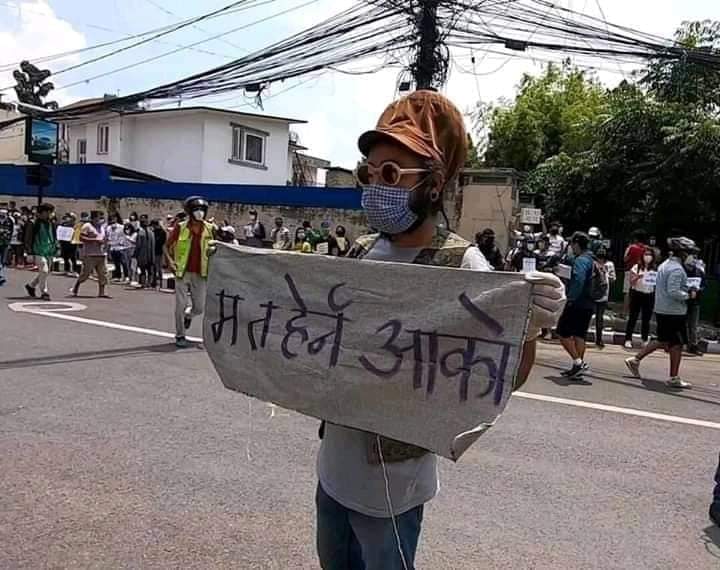 म त हेर्न आको